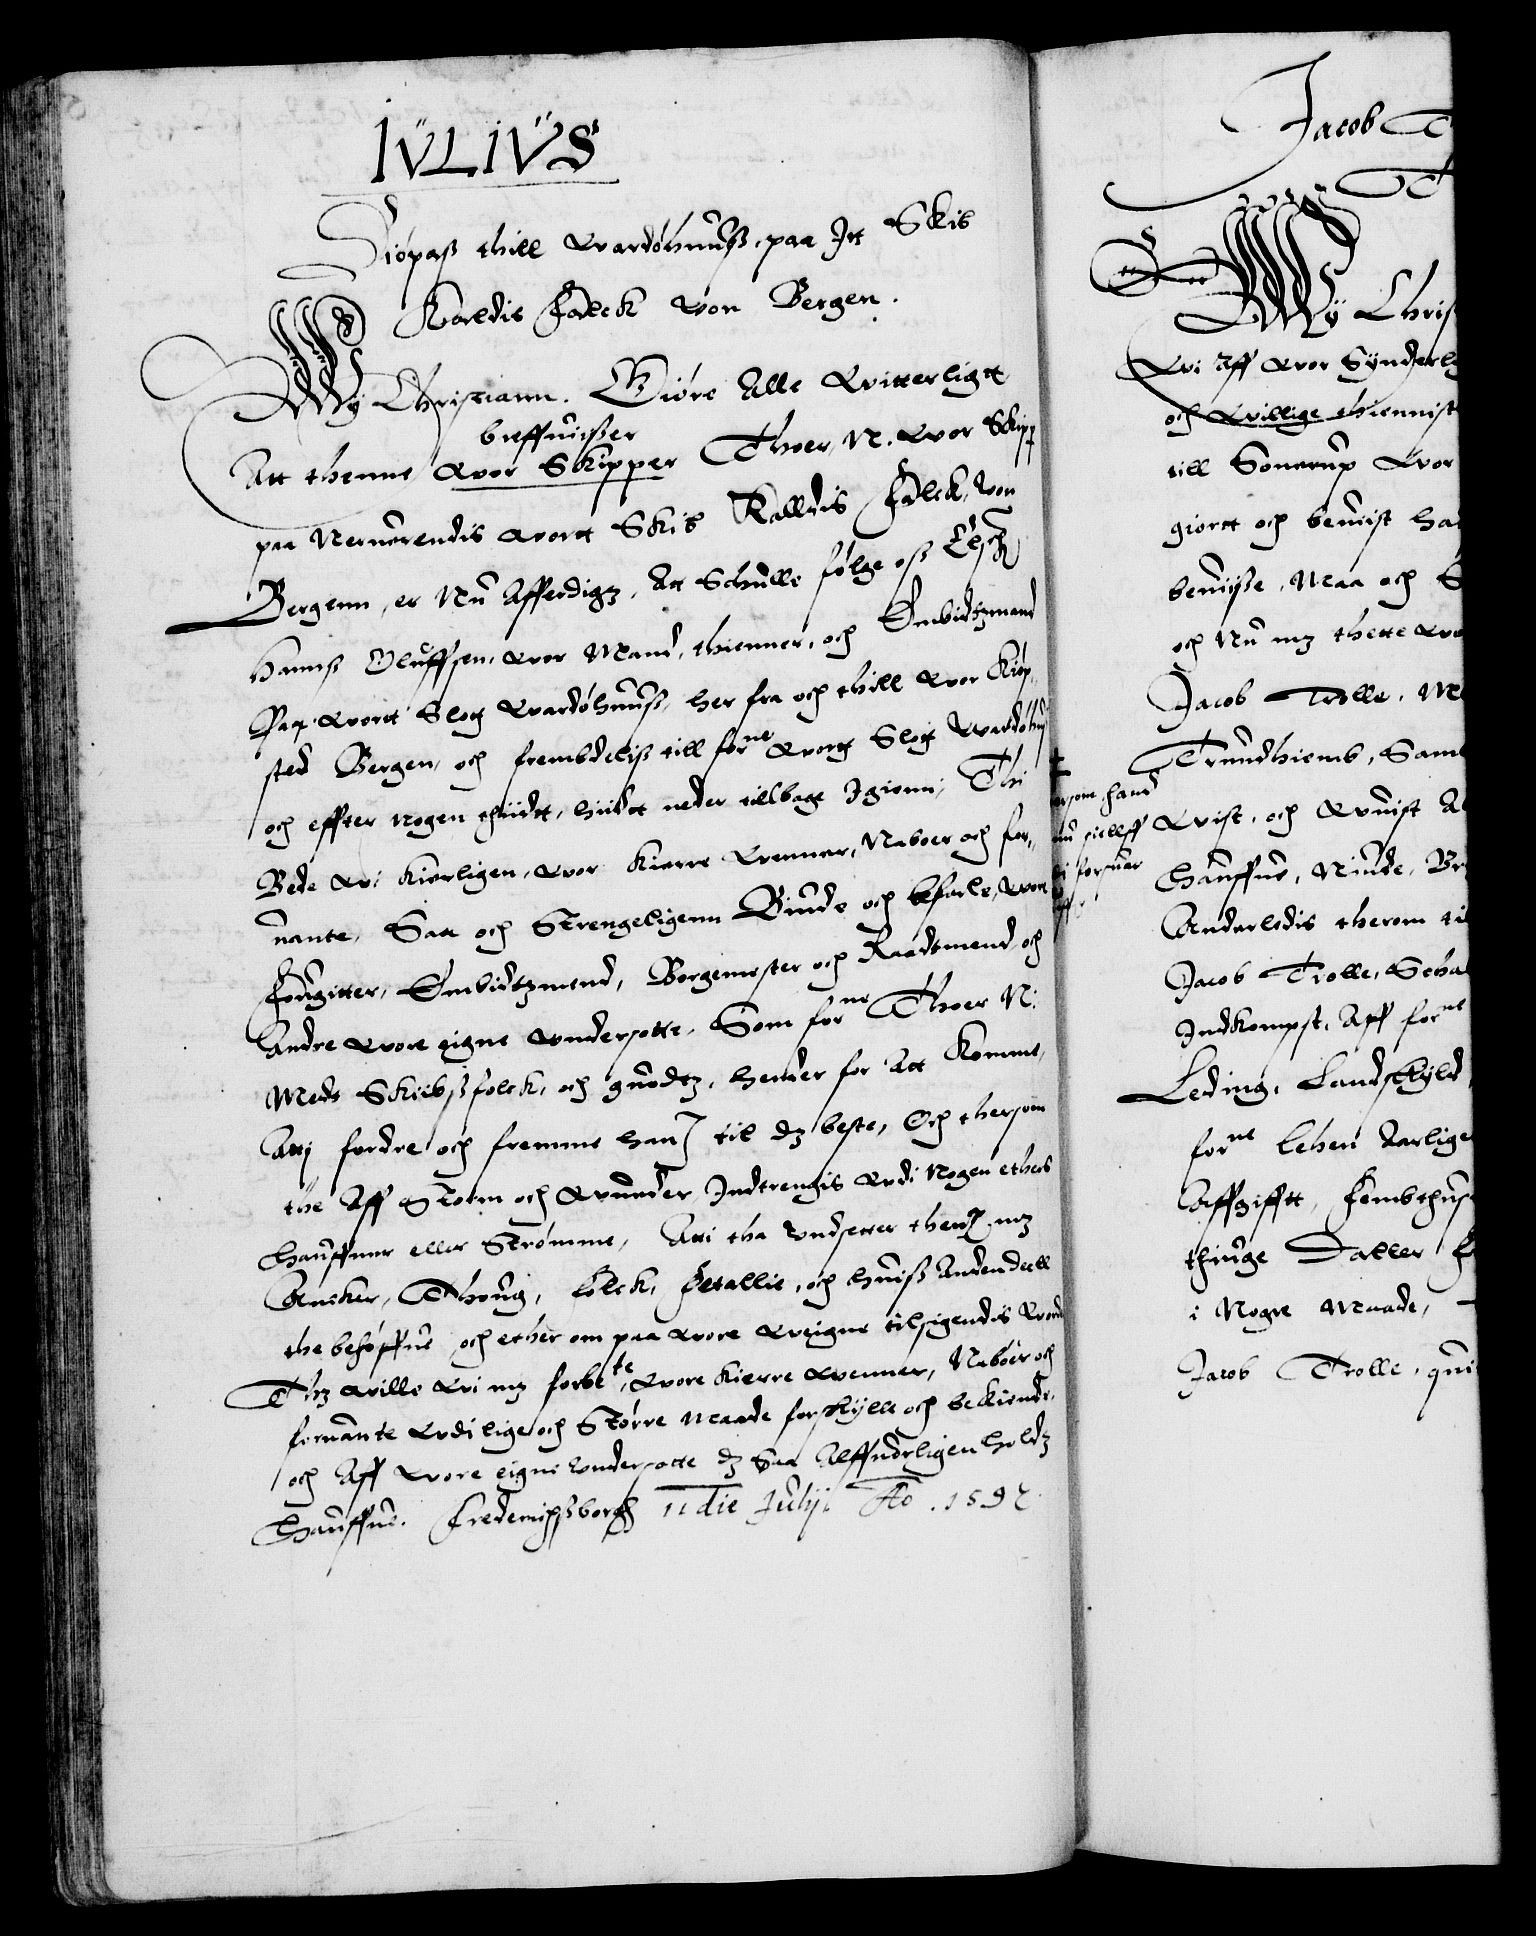 IVLIVS
Siöpas thill Wardöhuuß, paa Itt Skib
Kaldis Falck von Bergen.
Wy Christiann. Giöre Alle Witterligtt
breffuißer
Att thenne wor Skipper Thoer N. wor Skipp
paa Neruerendis wortt Skib Kalldis Falck, von
Bergenn, er Nu Afferdigz, Att Schulle følge oß Elsch
Hannß Oluffsen, wor Mand, thienner, och Embidtzmand
paa wortt Slog Wardöhuuß, her fra och thill wor Kiöp,,
sted Bergen, och frembdeliß till forne wortt Slog Wardöhuß
och effter nogen thiidtt, hiidtt neder tillbage Igienn, Thi
Bede wi Kierligen, wor Kierre Wenner, Naboer och for,,
uante, Saa och Strengeligenn Biude och befale, wore
Fougitter, Embidtzmend, Borgemester och Raadtmend och
Andre wore eigne Undersotte, Som forne Thoer N:
Medt Skiibßfolck, och guodtz, hender for Att Komme,
Atj fordre och fremme hanß til dz beste, Och thersom
the Aff Storm och Wunder Indtrengis Udi Nogen ethers
Hauffner eller Strömme, Atti tha Undsetter thenß mz
Ancker, Thoug, Folck, Fetallie, och huiß Andendeell
the behöffue och ether om paa wore Weigne tilsigendis Worder
Thz wille wi mz forbete, wore Kierre Wenner, Naboer och
foruante Udi lige och Större Maade forskylle och bekiende,
och Aff wore eigne Undersotte dz Saa Alffuorligen holdz
Hauffue. Frederichßborg 11 die Julij. Ao. 1592

ersom hand
nu sielff
forsuar

Jacob T
T
Wy Chris
Wi Aff wor Synderl
och Willige thienniste
till Sonerup wor
giortt och beuist ha
beuiiße, Maa och S
och Nu mz thette wo
Jacob Trolle, M
Trundhiemb, Sam
Wist, och Wuist A
Hauffue, Niude, Br
Anderledis therom til
Jacob Trolle, Scha
Indkompst, Aff forne
Leding, Landskyld
forne lehen Aarlige
Affgifftt, Fembthus
thiuge Daller
i Nogre Maade,
Jacob Trolle, qui